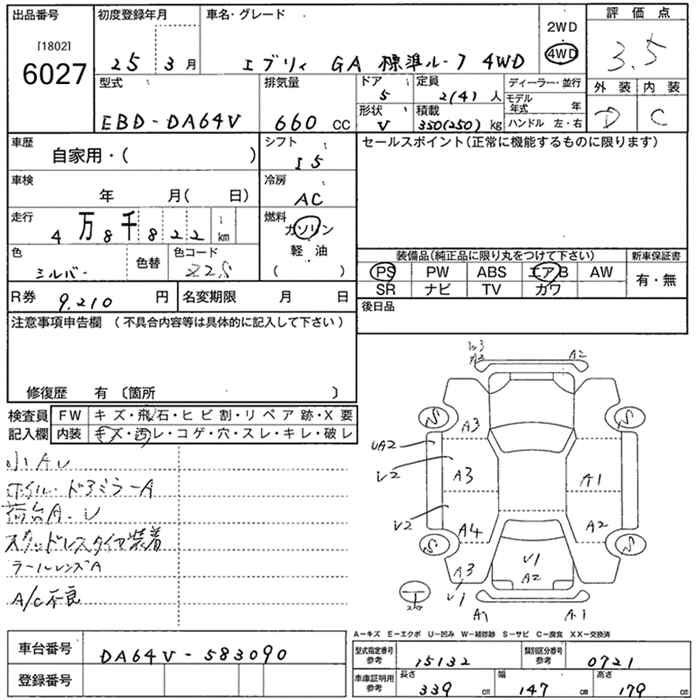 出品番号 初度登録年月 車名・グレード 2WD 評価点
[1802] 6027 25 3月 エブリィ GA 標準ルーフ 4WD 4WD 3.5
型式 排気量 ドア 定員 ディーラー・並行 外装 内装
5 2(4)人 モデル年式 年
EBD-DA64V 660 CC 形状 積載 D C
V 350(250)kg ハンドル 左・右
車歴 シフト セールスポイント(正常に機能するものに限ります)
自家用・( ) I5
車検 冷房
年 月( 日) AC
走行 燃料
4万8千822 km ガソリン
色 色替 色コード 軽油 装備品(純正品に限り丸をつけて下さい) 新車保証書
シルバー Z2S ( ) PS PW ABS エアB AW 有・無
R券 9.210 円 名変期限 月 日 SR ナビ TV カワ
注意事項申告欄(不具合内容等は具体的に記入して下さい) 後日品
修復歴 有〔箇所 〕
検査員 FW キズ・飛石・ヒビ割・リペア跡・X要
記入欄 内装 キズ・汚レ・コゲ・穴・スレ・キレ・破レ
小AU
ホイル・ドアミラーA
荷台A.U
スタッドレスタイヤ装着
テールレンズA
A/C不良
A2
S A3 S
UA2
U2 A3 A1
U2 A4 A2
S U1 S
A3 A2
U1 A1 A1
A−キズ E−エクボ U−凹み W−補修跡 S−サビ C−腐食 XX−交換済
車台番号 DA64V-583090 型式指定番号 参考 15132 類別区分番号 参考 0721
登録番号 車庫証明用 参考 長さ 339 cm 幅 147 cm 高さ 179 cm